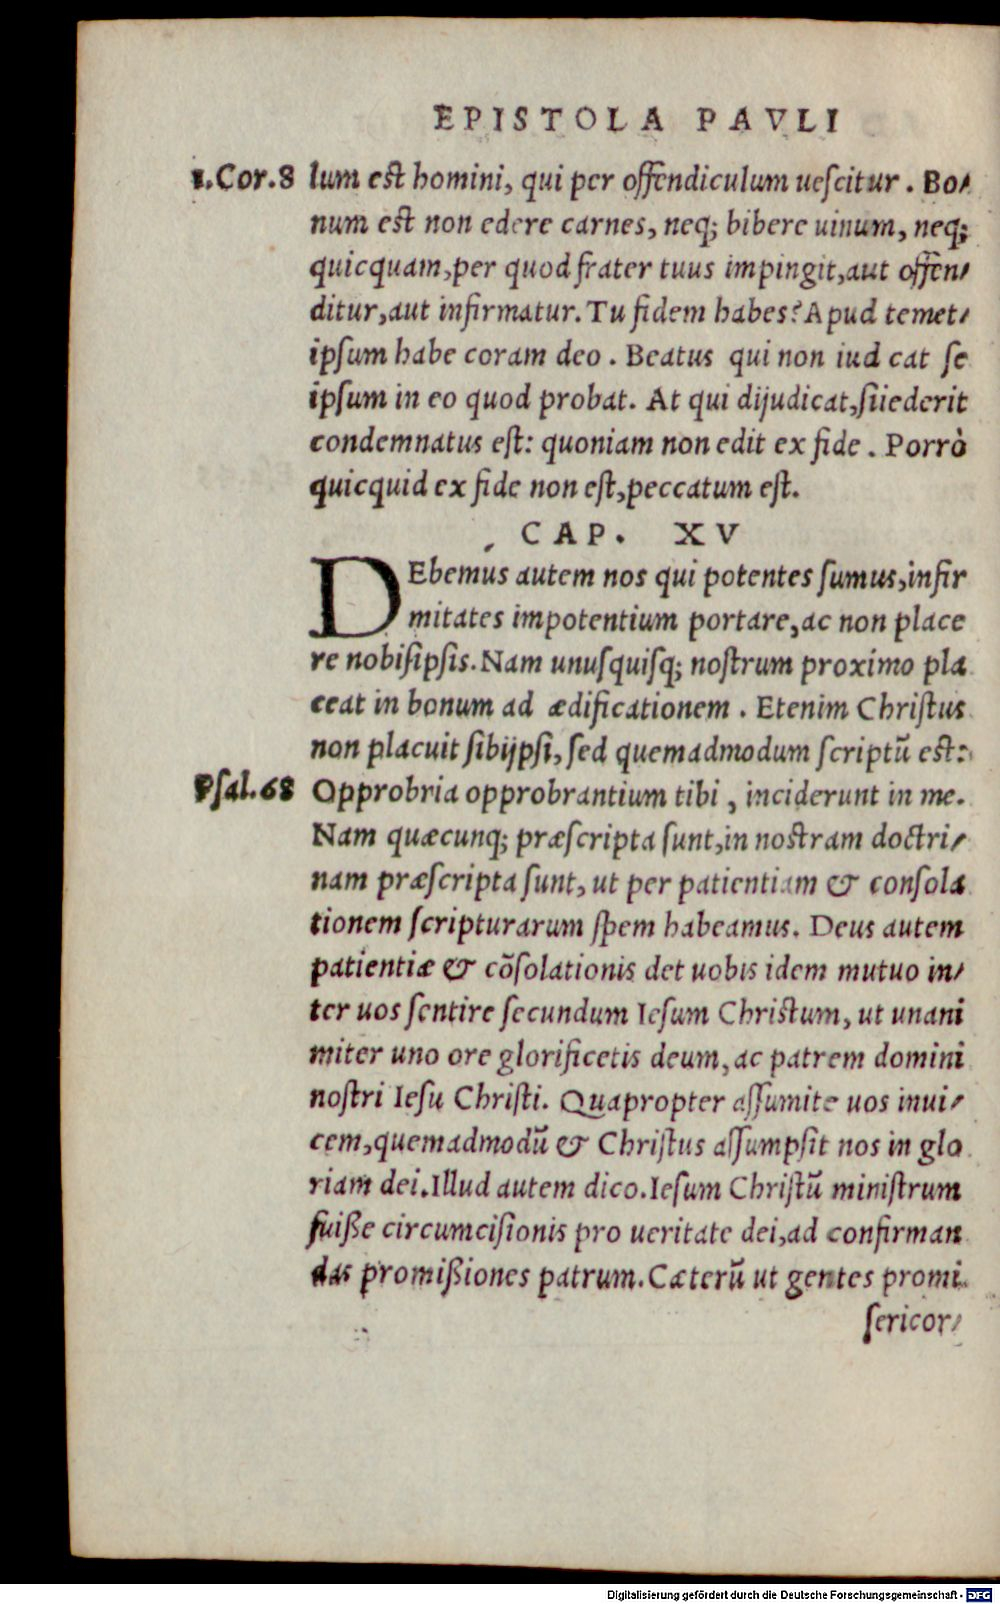 EPISTOLA PAVLI
1.Cor.8 lum est homini, qui per offendiculum uescitur. Bo/
num est non edere carnes, neq; bibere uinum, neq;
quicquam, per quod frater tuus impingit, aut offen/
ditur, aut infirmatur. Tu fidem habes? Apud temet/
ipsum habe coram deo. Beatus qui non iud cat se
ipsum in eo quod probat. At qui dijudicat, si ederit
condemnatus est: quoniam non edit ex fide. Porrò
quicquid ex fide non est, peccatum est.
CAP. XV
DEbemus autem nos qui potentes sumus, infir
mitates impotentium portare, ac non place
re nobisipsis. Nam unusquisq; nostrum proximo pla
ceat in bonum ad ædificationem. Etenim Christus
non placuit sibijpsi, sed quemadmodum scriptũ est:
Psal.68 Opprobria opprobrantium tibi, inciderunt in me.
Nam quæcunq; præscripta sunt, in nostram doctri/
nam præscripta sunt, ut per patientiam & consola
tionem scripturarum spem habeamus. Deus autem
patientiæ & cõsolationis det uobis idem mutuo in/
ter uos sentire secundum Iesum Christum, ut unani
miter uno ore glorificetis deum, ac patrem domini
nostri Iesu Christi. Quapropter assumite uos inui/
cem, quemadmodũ & Christus assumpsit nos in glo
riam dei. Illud autem dico. Iesum Christũ ministrum
fuiße circumcisionis pro ueritate dei, ad confirman
das promißiones patrum. Cæterũ ut gentes pro mi
sericor/
Digitalisierung gefördert durch die Deutsche Forschungsgemeinschaft - DFG